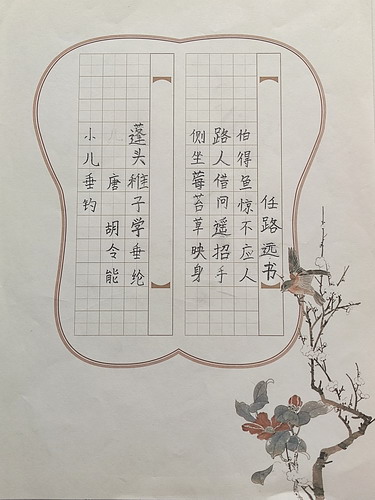 小儿垂钓
唐 胡令能
蓬头稚子学垂纶
侧坐莓苔草映身
路人借问遥招手
怕得鱼惊不应人
任路远书